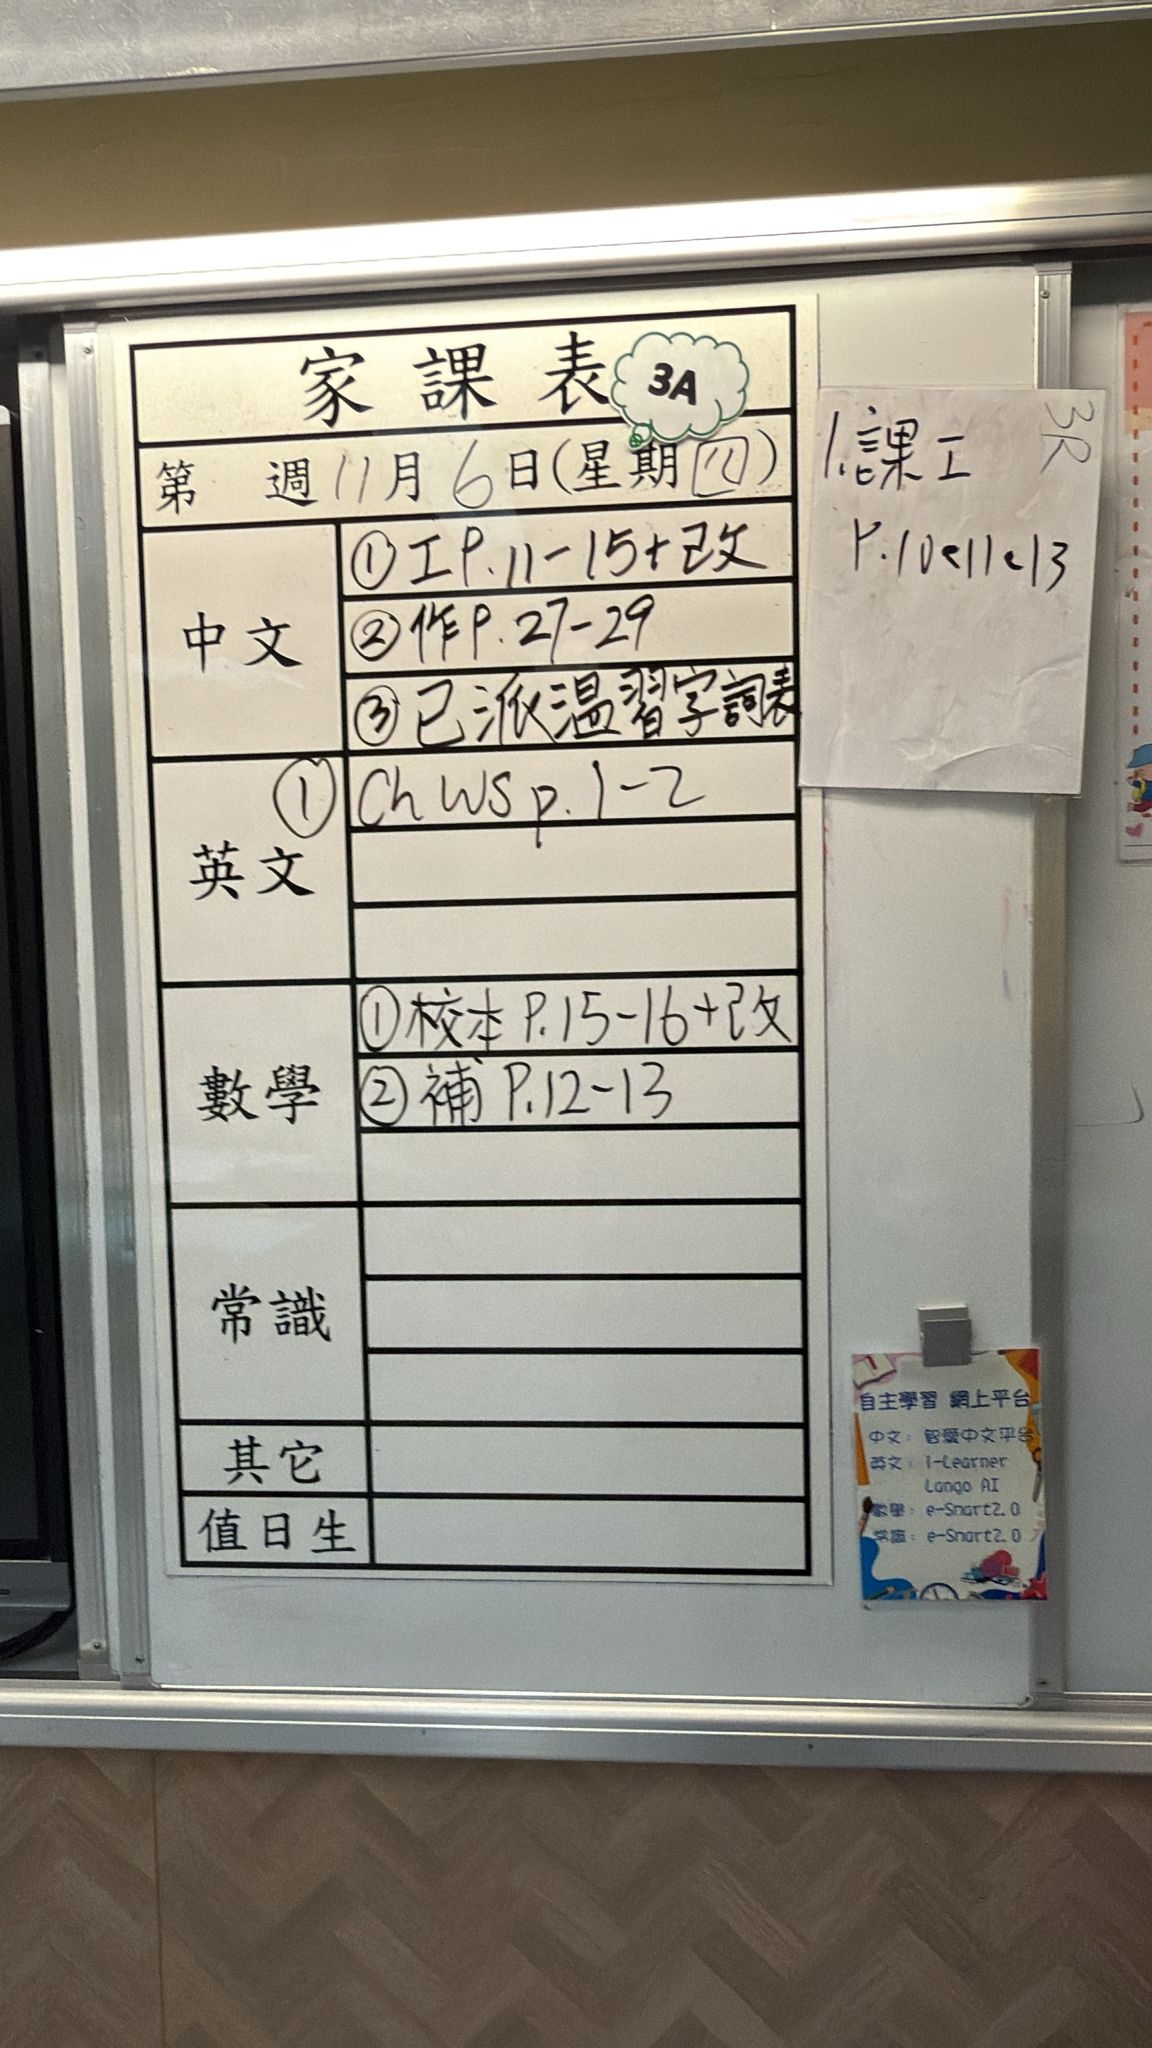 家課表
3A
第 週11月6日(星期四)
中文
①工P.11-15+改
②作P.27-29
③已派溫習字詞表
英文
① Ch WS p.1-2
數學
①校本 P.15-16+改
②補 P.12-13
常識
其它
值日生
3R
1.課工
P.10,11,13
自主學習 網上平台
中文：智愛中文平台
英文：i-Learner
Lango AI
數學：e-Smart2.0
常識：e-Smart2.0